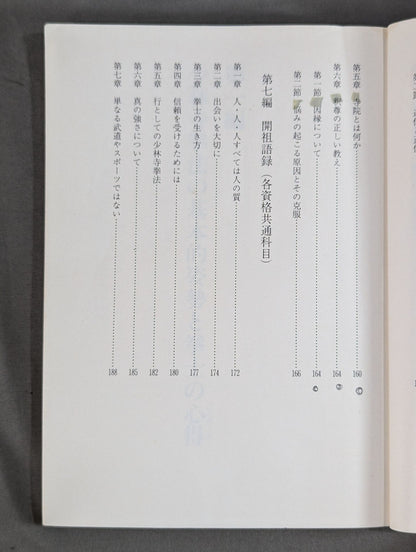 第五章 寺院とは何か 160
第六章 釈尊の正しい教え 164
第一節 因縁について 164
第二節 悩みの起こる原因とその克服 166
第七編 開祖語録（各資格共通科目）
第一章 人・人・人すべては人の質 172
第二章 出会いを大切に 174
第三章 拳士の生き方 177
第四章 信頼を受けるためには 180
第五章 行としての少林寺拳法 182
第六章 真の強さについて 185
第七章 単なる武道やスポーツではない 188